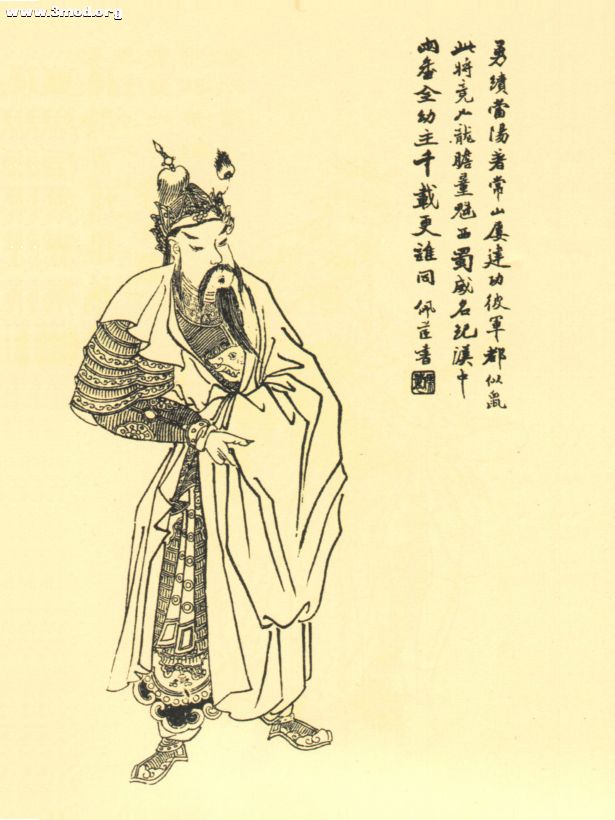 www.3mod.org
勇績當陽著常山屢建功彼軍都似鼠
此將竟如龍膽量魁西蜀威名紀漢中
兩番全幼主千載更誰同 佩書